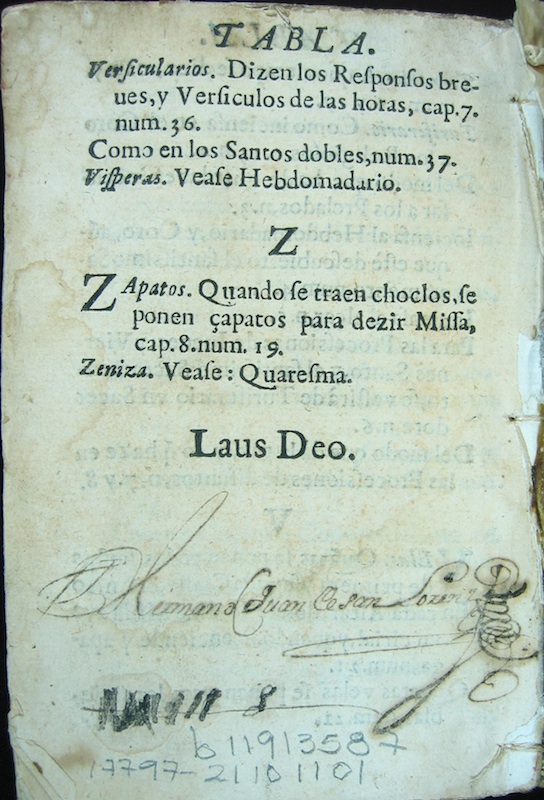 TABLA.
Versicularios. Dizen los Responsos bre-
ues, y Versiculos de las horas, cap.7.
num.36.
Como en los Santos dobles, num.37.
Visperas. Vease Hebdomadario.
Z
ZApatos. Quando se traen choclos, se
ponen çapatos para dezir Missa,
cap.8.num.19.
Zeniza. Vease: Quaresma.
Laus Deo.
Hermano Juan de san Lorenzo
8
b11913587
17797-21101101